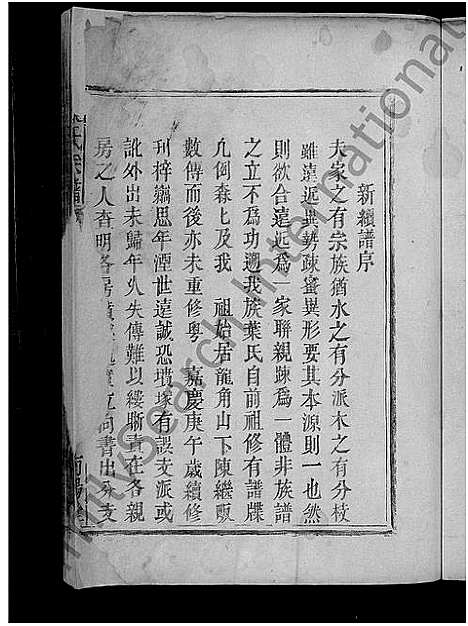 新纘譜序
夫家之有宗族猶水之有分派木之有分枝
雖遠近異勢疎蜜異形要其本源則一也然
則欲合遠近爲一家聯親疎爲一體非族譜
之立不爲功遡我族葉氏自前祖修有譜牒
凡例森匕及我 祖始居龍角山下陳繼
數傳而後亦未重修粤 嘉慶庚午歲續修
刊梓窃思年湮世遠誠恐墳塚有誤支派或
訛外出未歸年久失傳難以縷聯責在各親
房之人查明各房墳 向書出分支
南陽
FamilySearch International